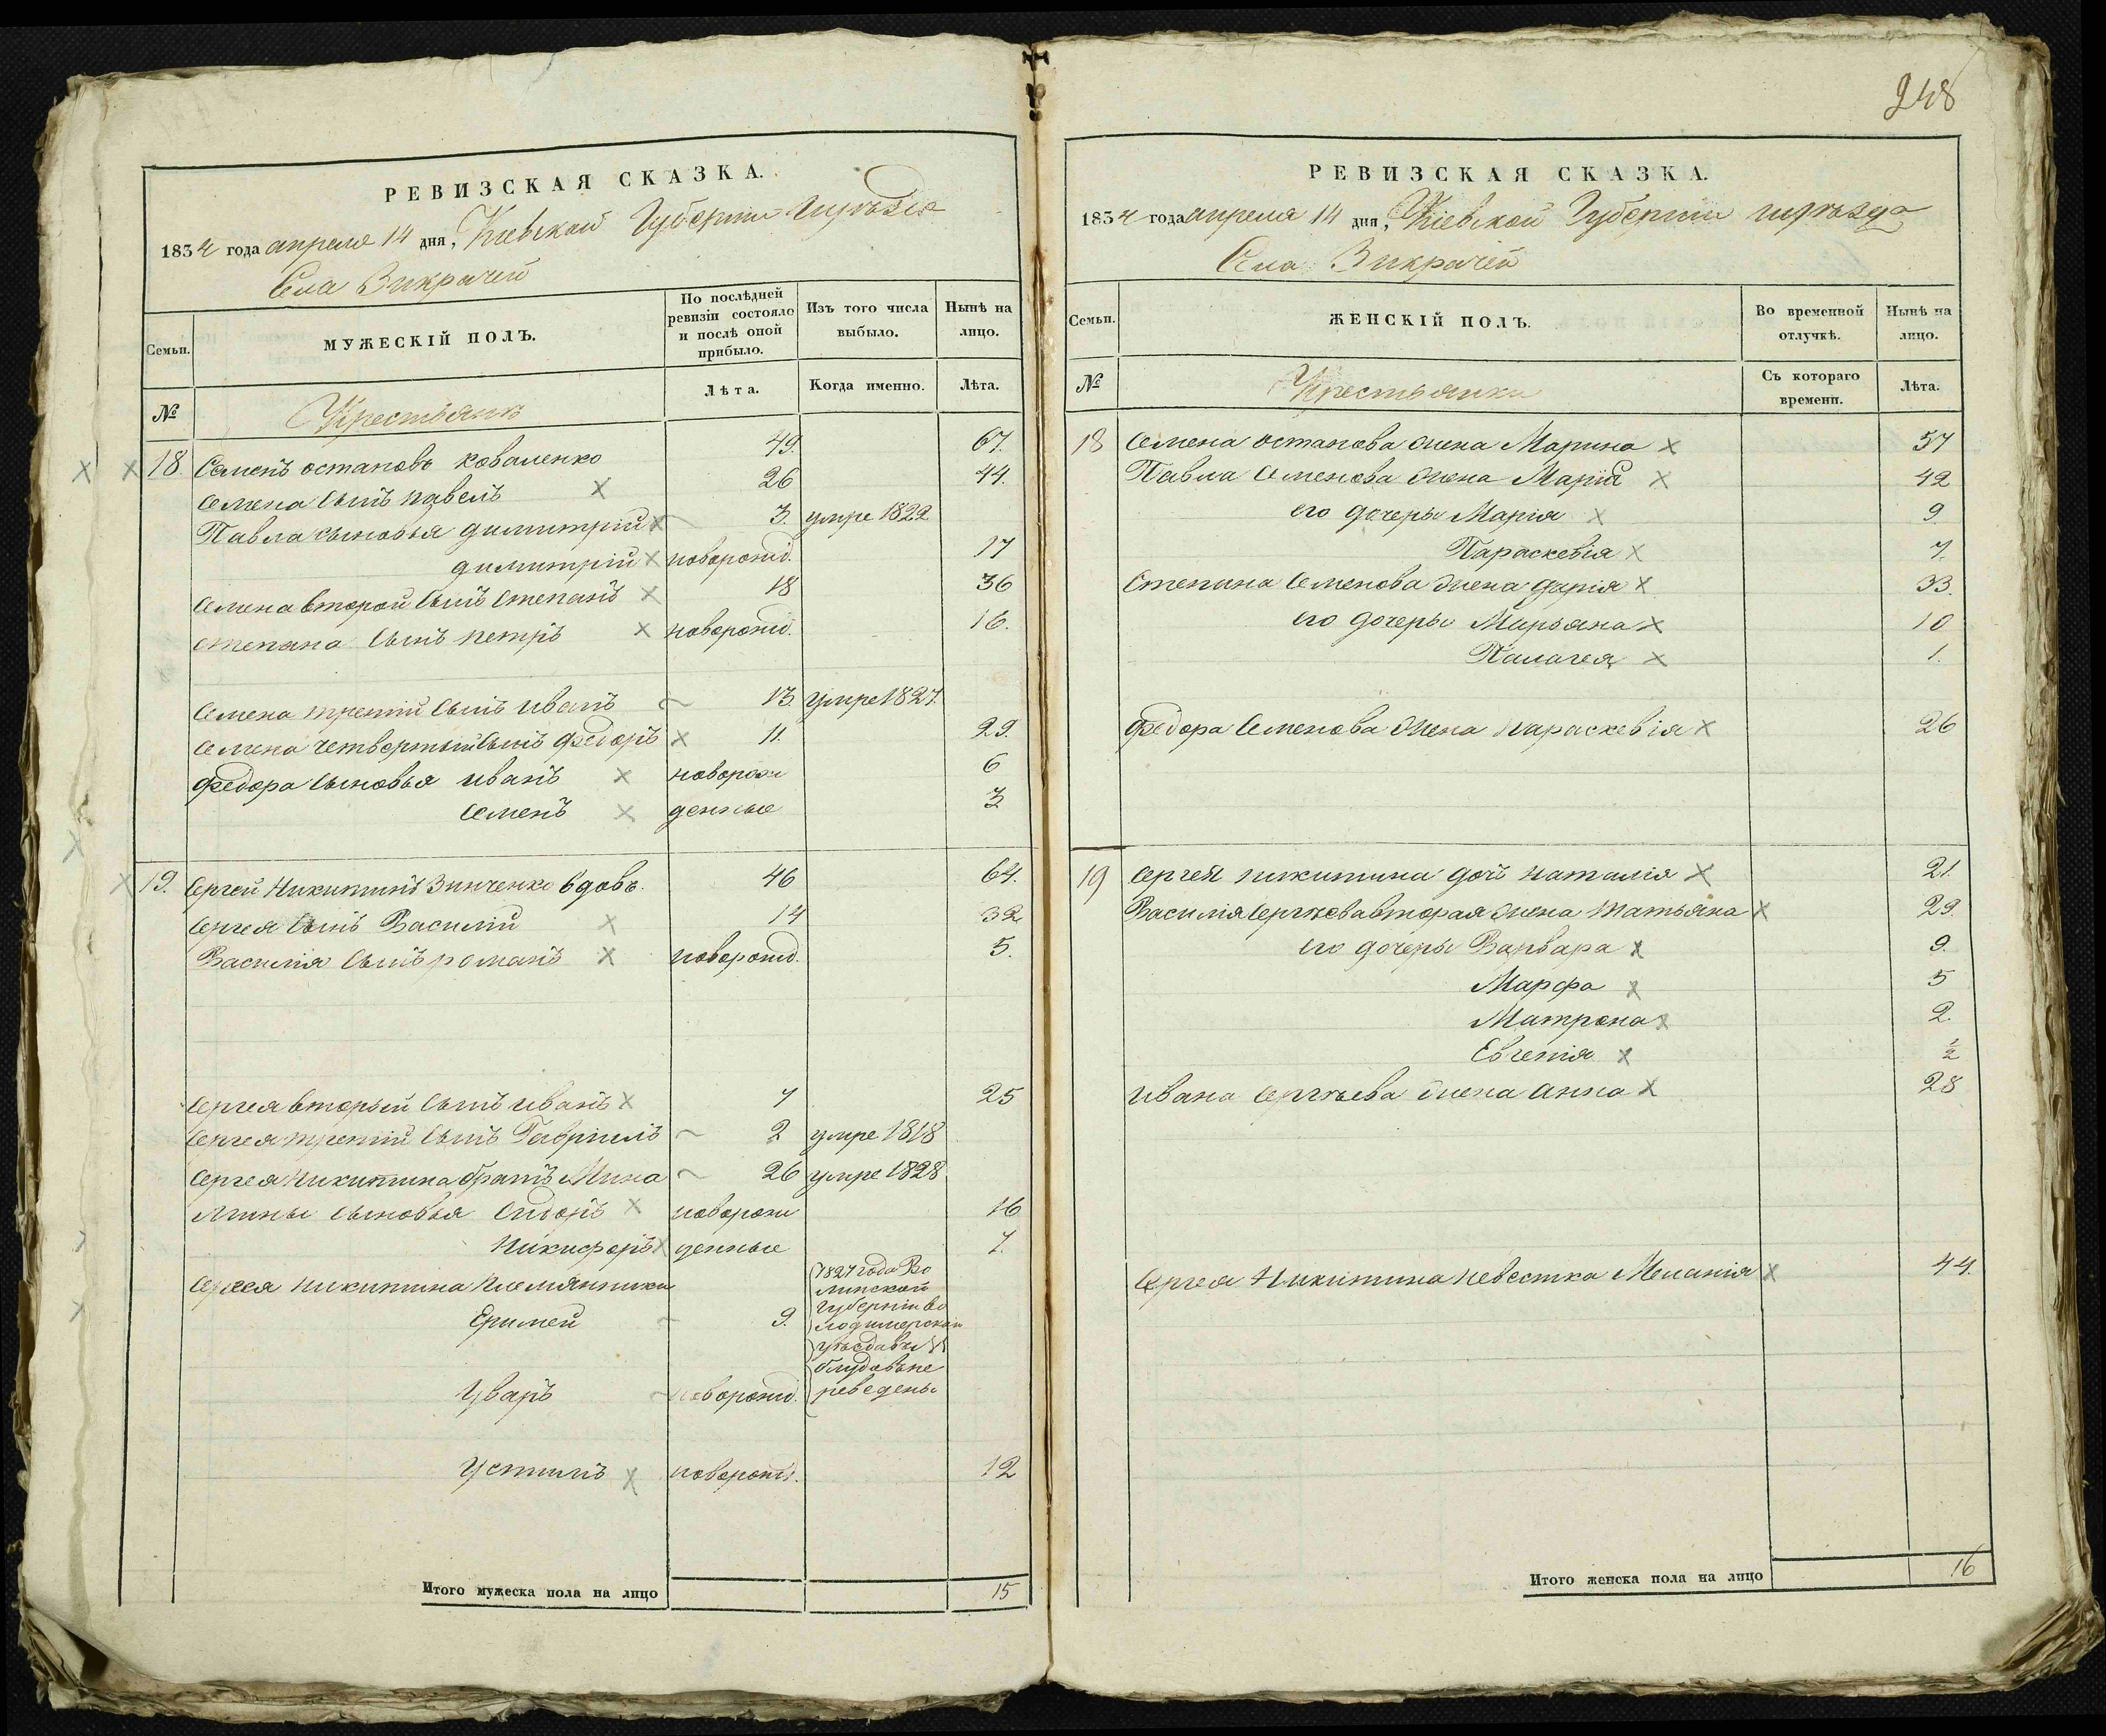 РЕВИЗСКАЯ СКАЗКА.
1834 года апреля 14 дня, Кіевской Губерніи и уѣзда
Села Викрачей
Семьи.
МУЖЕСКІЙ ПОЛЪ.
По послѣдней ревизіи состояло и послѣ оной прибыло.
Изъ того числа выбыло.
Нынѣ на лицо.
№
Крестьянъ
Лѣта.
Когда именно.
Лѣта.
18. Семенъ остаповъ коваленко 49. 67.
Семена сынъ павелъ 26 44.
Павла сыновья димитрій 3. умре 1822
димитрій новорожд. 17
Семена второй сынъ степанъ 18 36
степана сынъ петръ новорожд. 16.
Семена третій сынъ иванъ 13. умре 1827.
Семена четвертый сынъ федоръ 11. 29.
федора сыновья иванъ новорож 6
Семенъ денные 3
19. Сергей Никитинъ Зинченко вдовъ. 46 64.
Сергея сынъ Василій 14 32
Василія сынъ романъ новорожд. 5.
Сергея вторый сынъ иванъ 7 25
Сергея третій сынъ Гавріилъ 2 умре 1818
Сергея Никитина братъ Мина 26 умре 1828
Мины сыновья Сидоръ новорож 16
Никифоръ денные 7.
Сергея никитина племянники
Еримей 9.
1827 года Во
лынской
Губерніи во
лодимерскаи
уѣзда въ
блудовъ пе
реведены
Уваръ новорожд.
Устинъ новорожд. 12
Итого мужеска пола на лицо 15
248
РЕВИЗСКАЯ СКАЗКА.
1834 года апреля 14 дня, Кіевской Губерніи и уѣзда
Села Викрачей
Семьи.
ЖЕНСКІЙ ПОЛЪ.
Во временной отлучкѣ.
Нынѣ на лицо.
№
Крестьянки
Съ котораго времени.
Лѣта.
18 Семена остапова жена Марина 57
Павла Семенова жена Марія 42
его дочеры Марія 9
Параскевія 7.
Степана Семенова жена дарія 33.
его дочеры Марьяна 10
Палагея 1.
федора Семенова жена параскевія 26
19 Сергея никитина дочь наталія 21.
Василія Сергѣева вторая жена татьяна 29.
его дочеры Варвара 9.
Марфа 5
Матрона 2.
Евгенія ½
ивана Сергѣева жена анна 28
Сергея Никитина невестка Меланія 44.
Итого женска пола на лицо 16